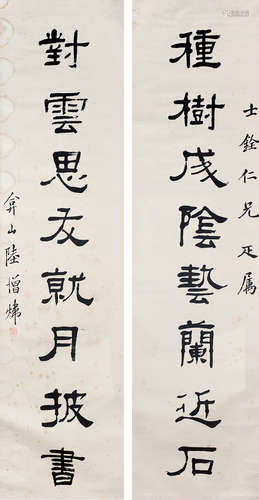 士銓仁兄疋屬
種樹成陰藝蘭近石
對雲思友就月披書
弇山陸增煒